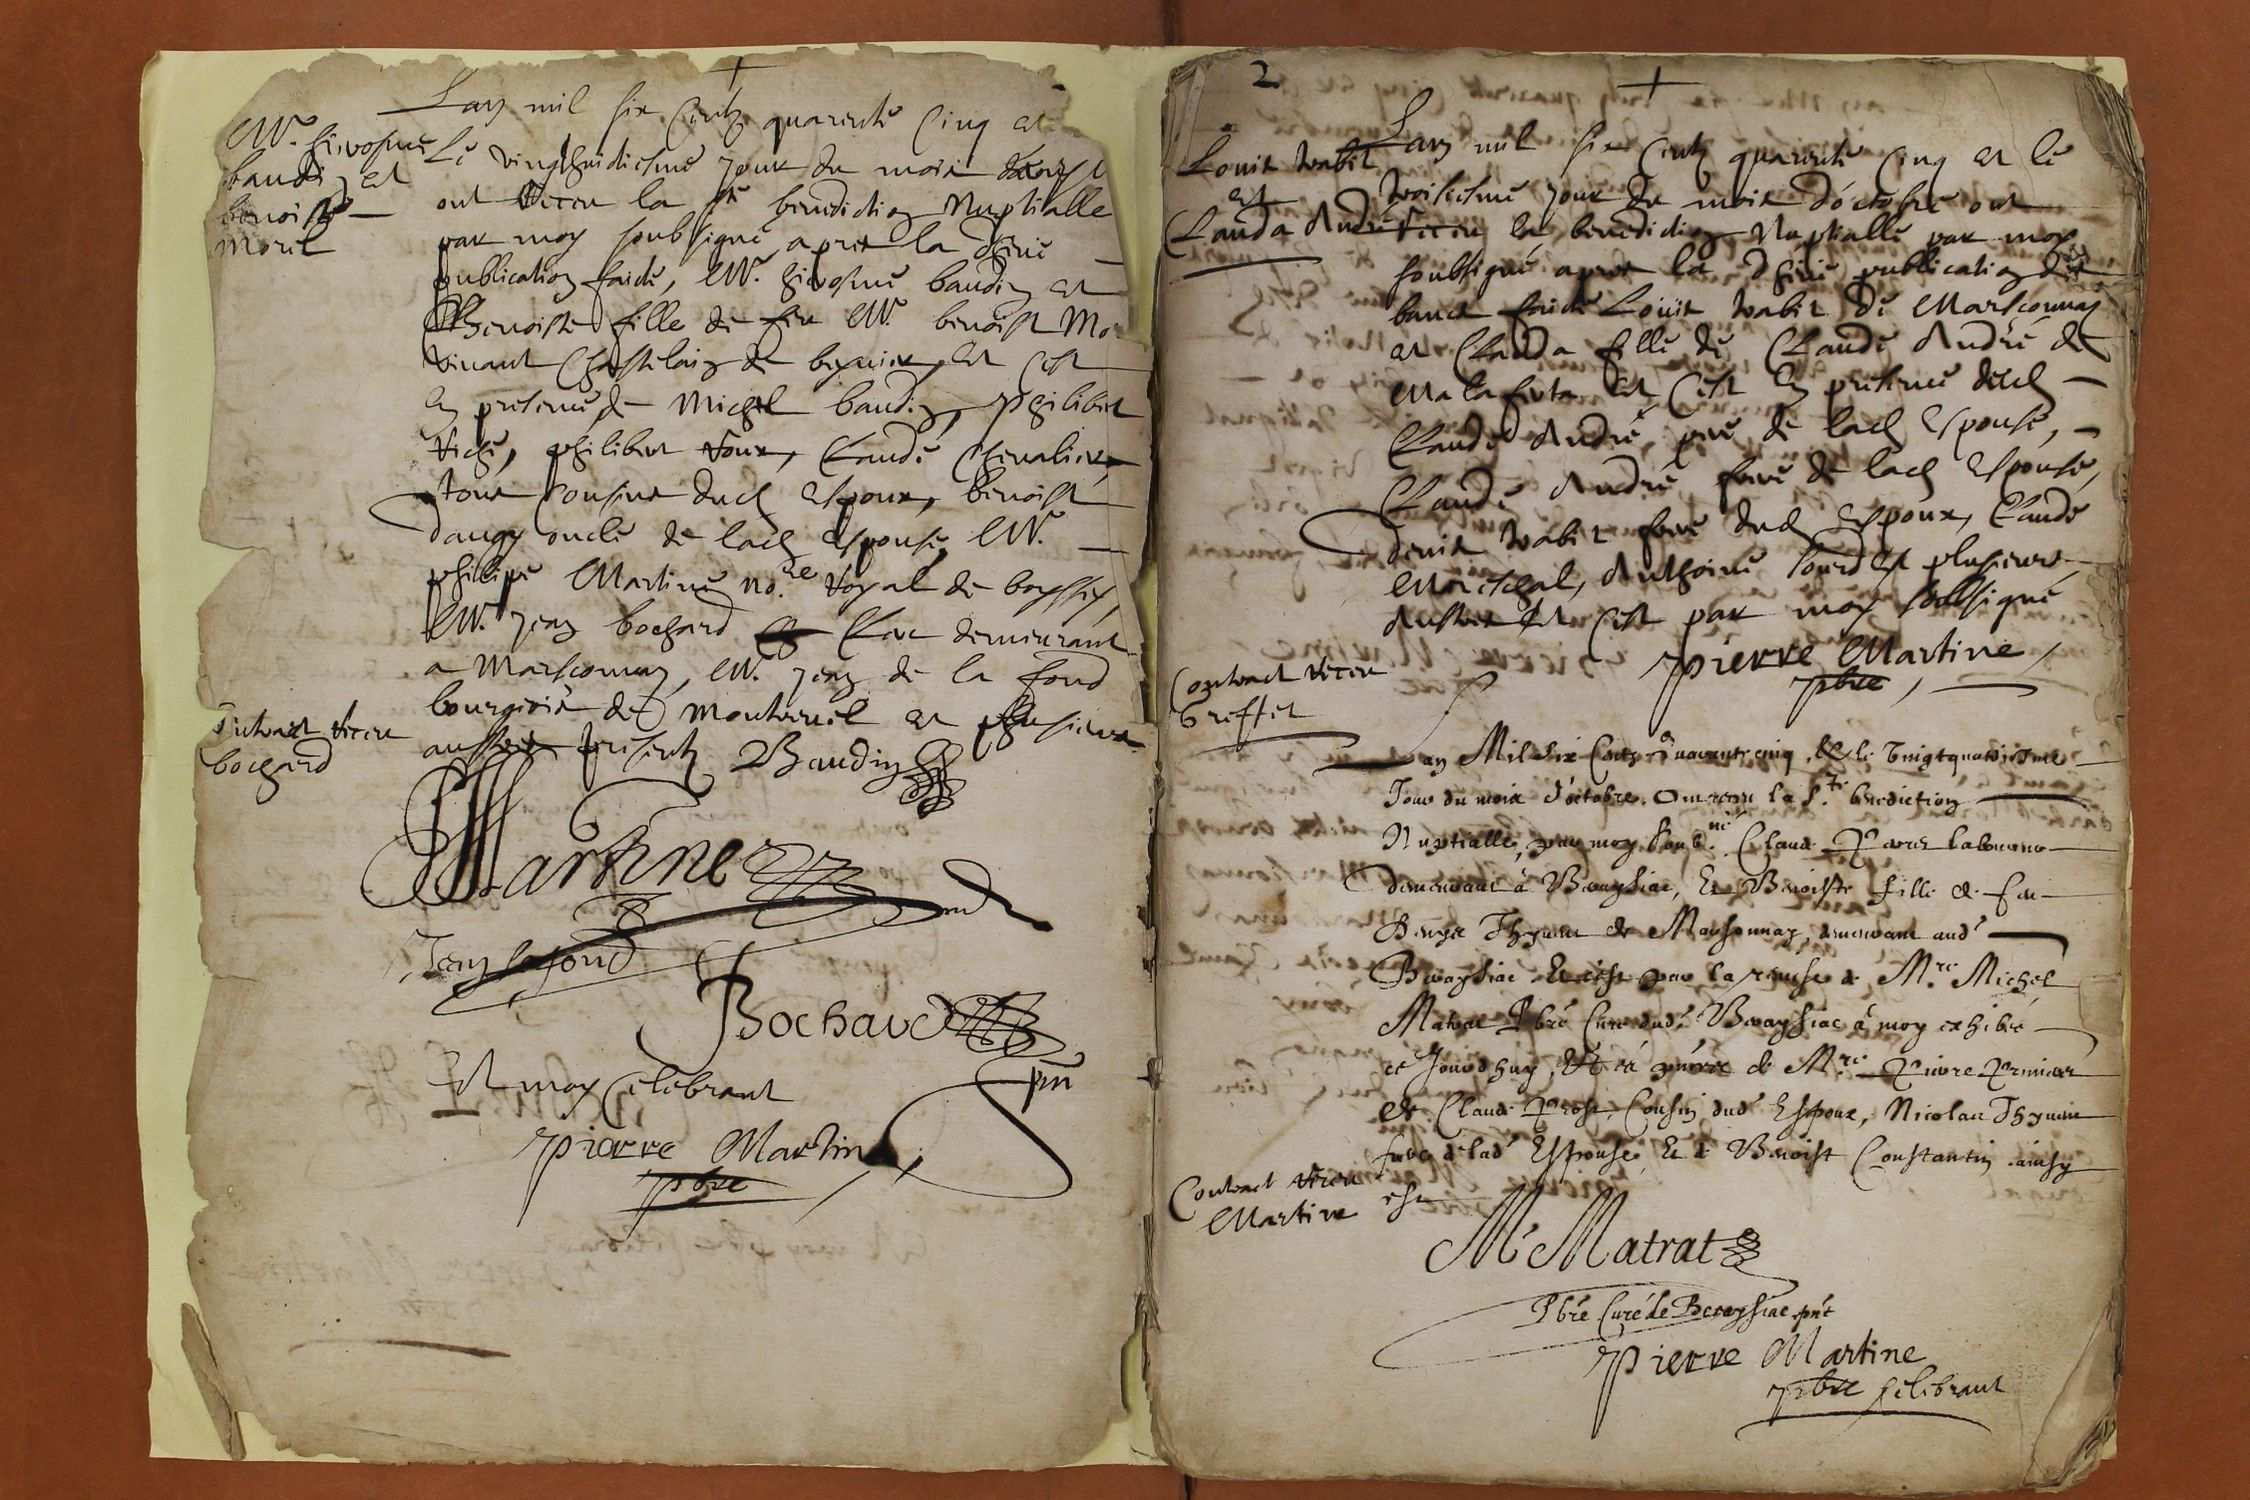 Lan mil six Centz quarente Cinq et
Le vingthuictiesme jour du mois daoust
ont Receu la ste benediction Nuptialle
par moy soubsigné apres la dherie
publication faicte, Mr. hierosme baudin et
Benoiste fille de feu Mr. benoist Mo
vivant Chastelain de et Cest
en presence de Michel baudin, philibert
philibert Roux, Claude Chevalier
tous Cousins dud espoux, benoist
dangy oncle de lad espouse, Mr.
philipe Martine no.re Royal de boyssey,
Mr. jean bochard Clerc demeurant
a Marsonnay, Mr. jean de la fond
bourgeois de Montrevel et plusieurs
aultres presentz Baudin
Mr. hierosme
baudin et
benoiste
Morel
Contract Receu
bochard
Martine
Jean lafond
Bochard
pnt
Et moy Celebrant
pierre Martine
pbre
2
Lan mil six Centz quarente Cinq et le
troisiesme jour du mois d'octobre ont
Receu la benediction Nuptialle par moy
soubsigné apres la dherie publication des
bancs faicte Louis trabit de Marsonnay
et Clauda fille de Claude André de
Malaferta et Cest en presence dud
Claude André, pere de lad espouse,
Claude André frere de lad espouse,
denis trabit frere dud espoux, Claude
Mareschal, Anthoine lourd et plusieurs
Aultres Et Cest par moy soubsigné
pierre Martine
pbre
Louis trabit
et
Clauda André
Contract Receu
Greffet
Lan Mil Six Centz Quarante cinq, Et le Vingtquatriesme
Jour du mois d'octobre. Ont receu la S.te benediction
Nuptialle, par moy soub.né Claude laboureur
demeurant à Bereysiac, Et Benoiste fille de feu
Thyvent de Marsonnay, demeurant aud
Bereysiac Et c'est par la remise de M.re Michel
Matrat Pbré Curé dud. Bereysiac à moy exhibée
ce Jourdhuy, Et en de M.re Pierre
de Claude Prost, Cousin dud Espoux, Nicolas Thyvent
frere de lad Espouse, Et de Benoist Constantin ainsy
est
Contract Receu
Martine
M Matrat
Pbré Curé de Bereysiac pnt
pierre Martine
pbre Celebrant